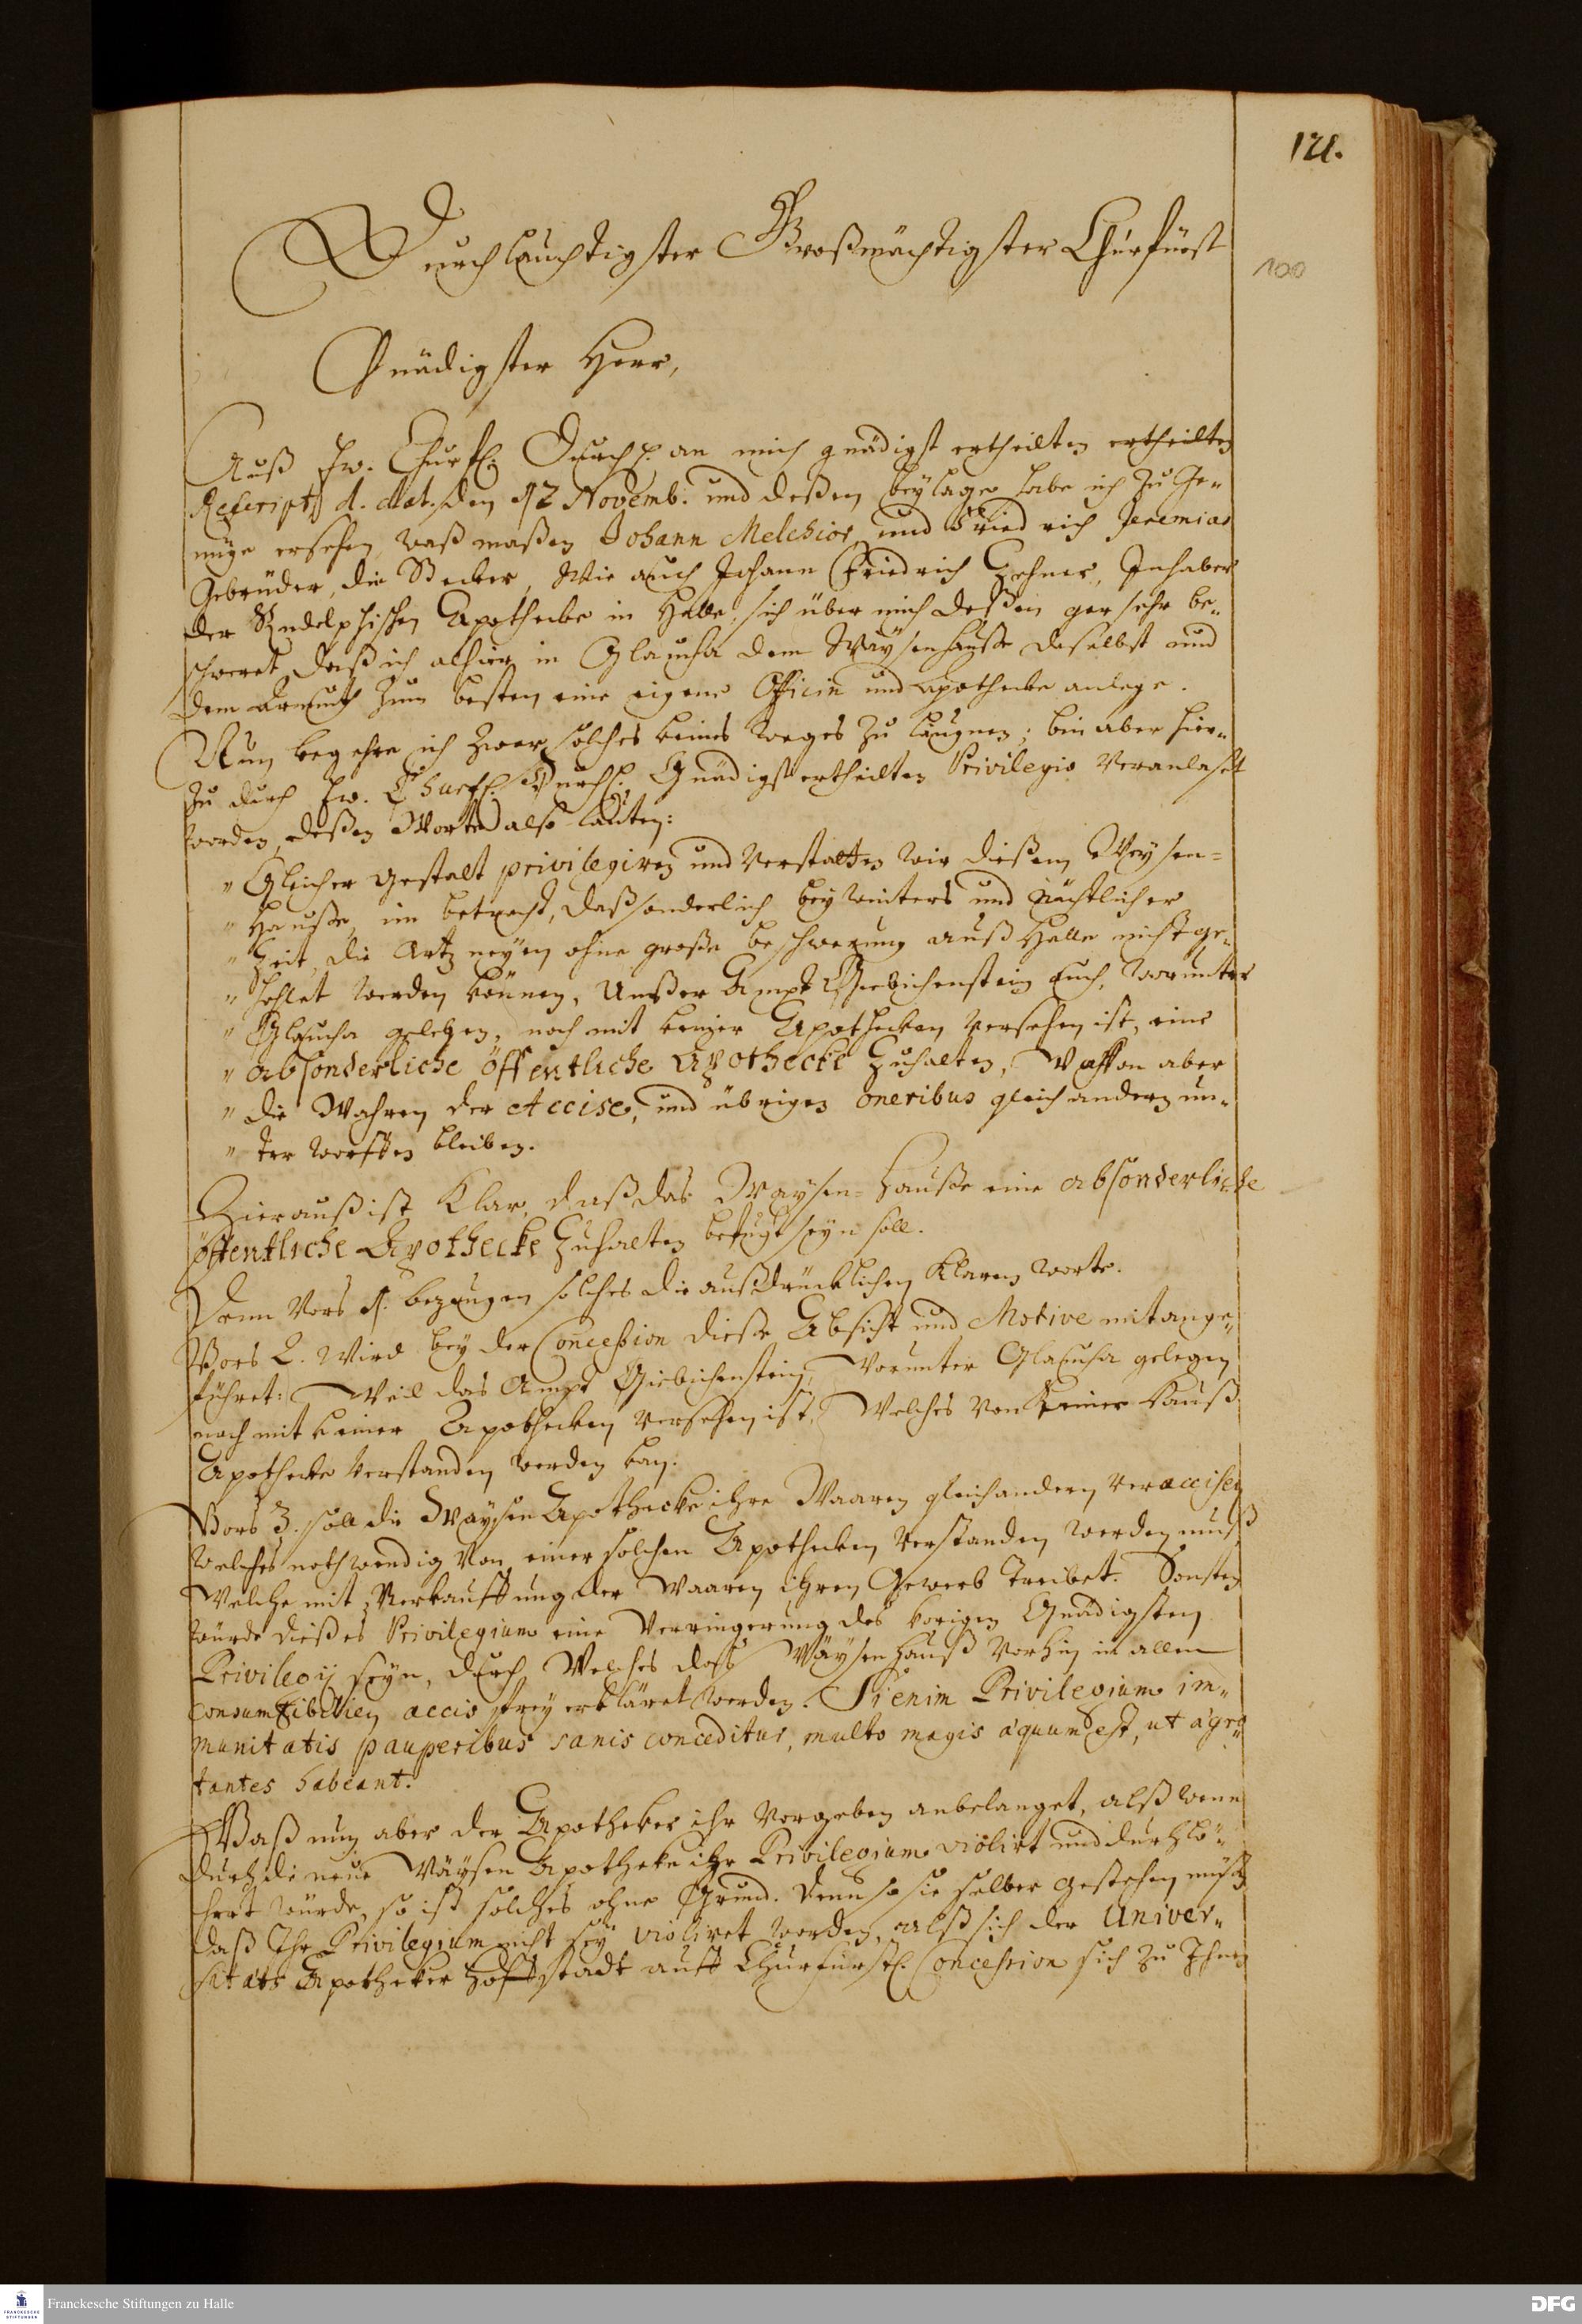 121.
Durchlauchtigster Großmächtigster Churfürst
100
Gnädigster Herr,
Auß Ew. Churfl. Durchl. an mich gnädigst ertheilten ertheilten
Rescripts d. dat. den 12 Novemb. und deßen beylage habe ich zu Ge„
nüge ersehen, waß maßen Johann Melchior, und Friedrich Jeremias
Gebrüder, die Becker, Wie auch Johann Friedrich Zehner, Inhaber
der Rudelphischen Apothecke in Halle, sich über mich deßen gar sehr be„
schweret, daß ich alhier in Glaucha dem Waysenhauße daselbst und
dem Armuth zum besten eine eigene Officin und Apothecke anlege.
Nun begehre ich zwar solches keines weges zu läugnen; bin aber hier„
zu durch Ew. Churfl. Durchl. Gnädigst ertheilten Privilegio Veranlaset
worden, deßen Worte also lauten:
„ Gleicher gestalt privilegiren und Verstatten wir dießem Weysen=
„ Hauße, in betracht, daß sonderlich bey winters und nächtlicher
„ Zeit, die Artzneyen ohne große beschwerung auß Halle nicht ge„
„ hohlet werden können, Unßer Ampt Giebichenstein auch, worunter
„ Glaucha gelegen, noch mit keiner Apothecken versehen ist, eine
„ absonderliche öffentliche Apothecke Zuhalten, Wovon aber
„ die Wahren der Accise, und übrigen oneribus gleich andern un„
„ ter worffen bleiben.
Hierauß ist Klar, daß das Waysen=Hauße eine absonderliche
öffentliche Apothecke Zuhalten befugt seyn soll.
Denn Vors 1. bezeugen solches die außdrücklichen Klaren worte.
Vors 2. Wird bey der Concession dieße Absicht und Motive mit ange„
führet: Weil das Ampt Giebichenstein, Worunter Glaucha gelegen
noch mit keiner Apothecken versehen ist, Welches von keiner Hauß
Apothecke verstanden werden kan.
Vors 3. soll die Waysen Apothecke ihre Waaren gleich andern veraccisen
welches nothwendig Von einer solchen Apothecken verstanden werden muß
Welche mit Verkauffung der Waaren ihren Gewerb treibet. Sonsten
würde dießes Privilegium eine Verringerung des vorigen Gnädigsten
Privilegij seyn, durch Welches daß Wäysenhauß Vorhin in allen
consumtibilien accis frey erkläret worden. Si enim Privilegium im„
munitatis pauperibus sanis conceditur, multo magis æquum est, ut ægro„
tantes habeant.
Waß nun aber der Apotheker ihr Vorgeben anbelanget, alß wenn
durch die neue Wäysen Apotheke ihr Privilegium violirt und durchlö„
chert würde, so ist solches ohne Grund. Denn so sie selber gestehen müßen
daß Ihr Privilegium nicht sey violiret worden, alß sich der Univer„
sitäts Apotheker Hoffstadt auff Churfürstl. Concession sich zu Ihnen
Franckesche Stiftungen zu Halle
DFG